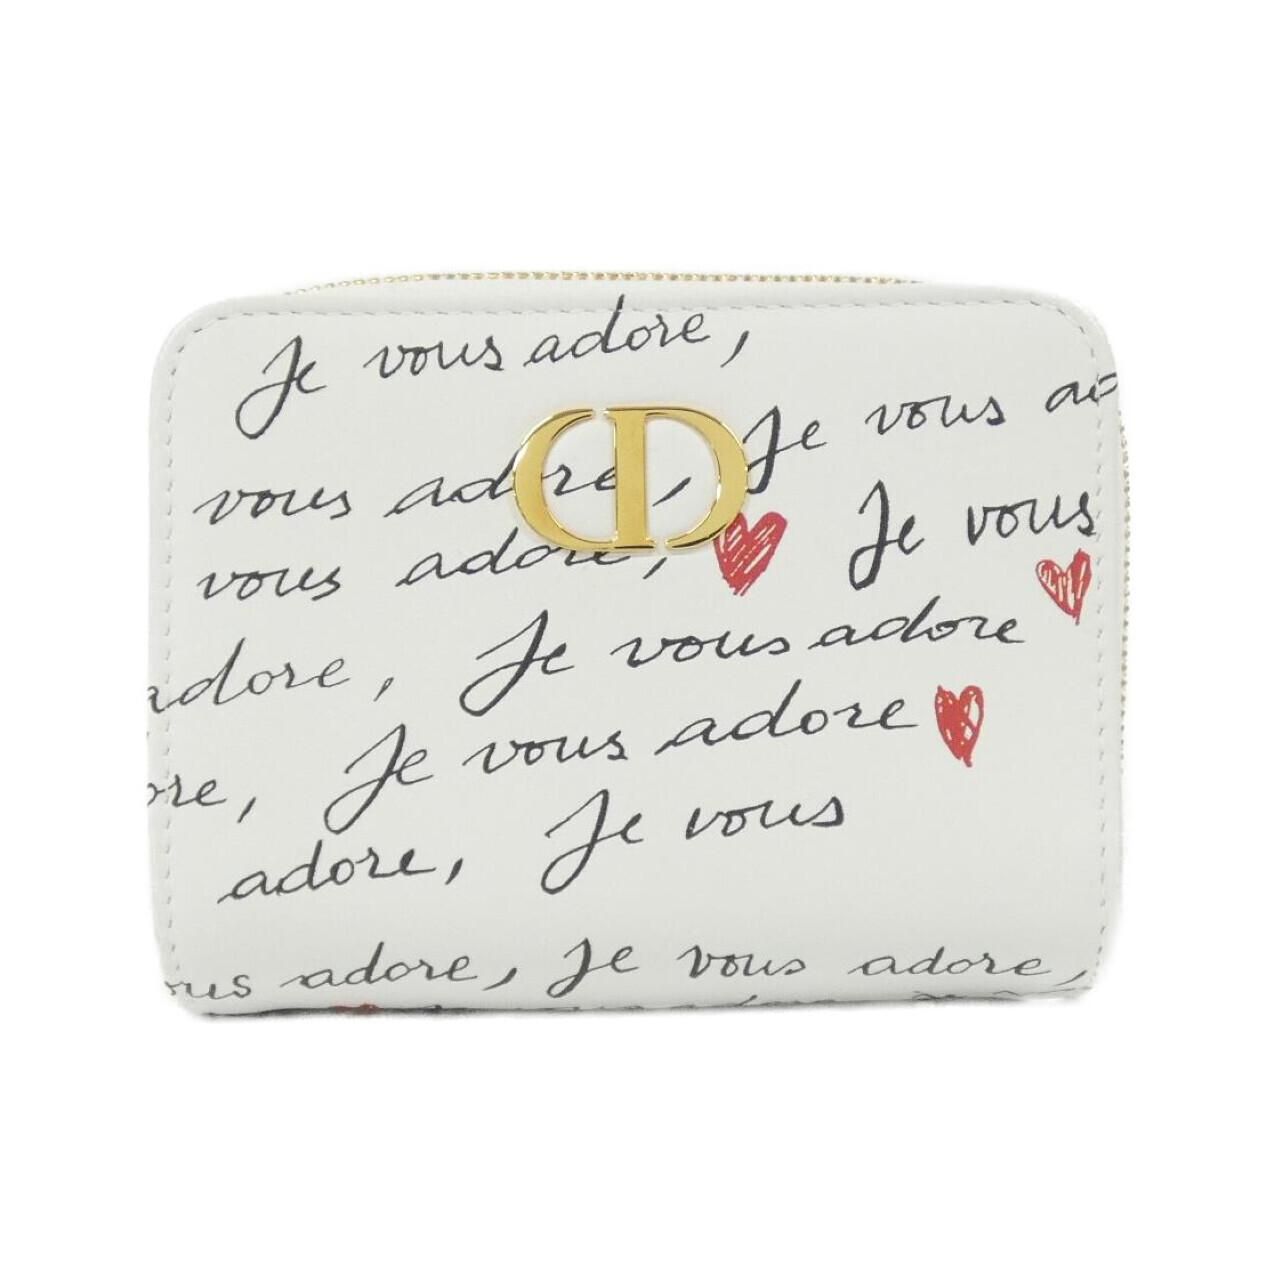 Je vous adore,
vous adore, Je vous ad
CD
vous adore, Je vous
adore, Je vous adore
ore, Je vous adore
adore, Je vous
ous adore, Je vous adore,